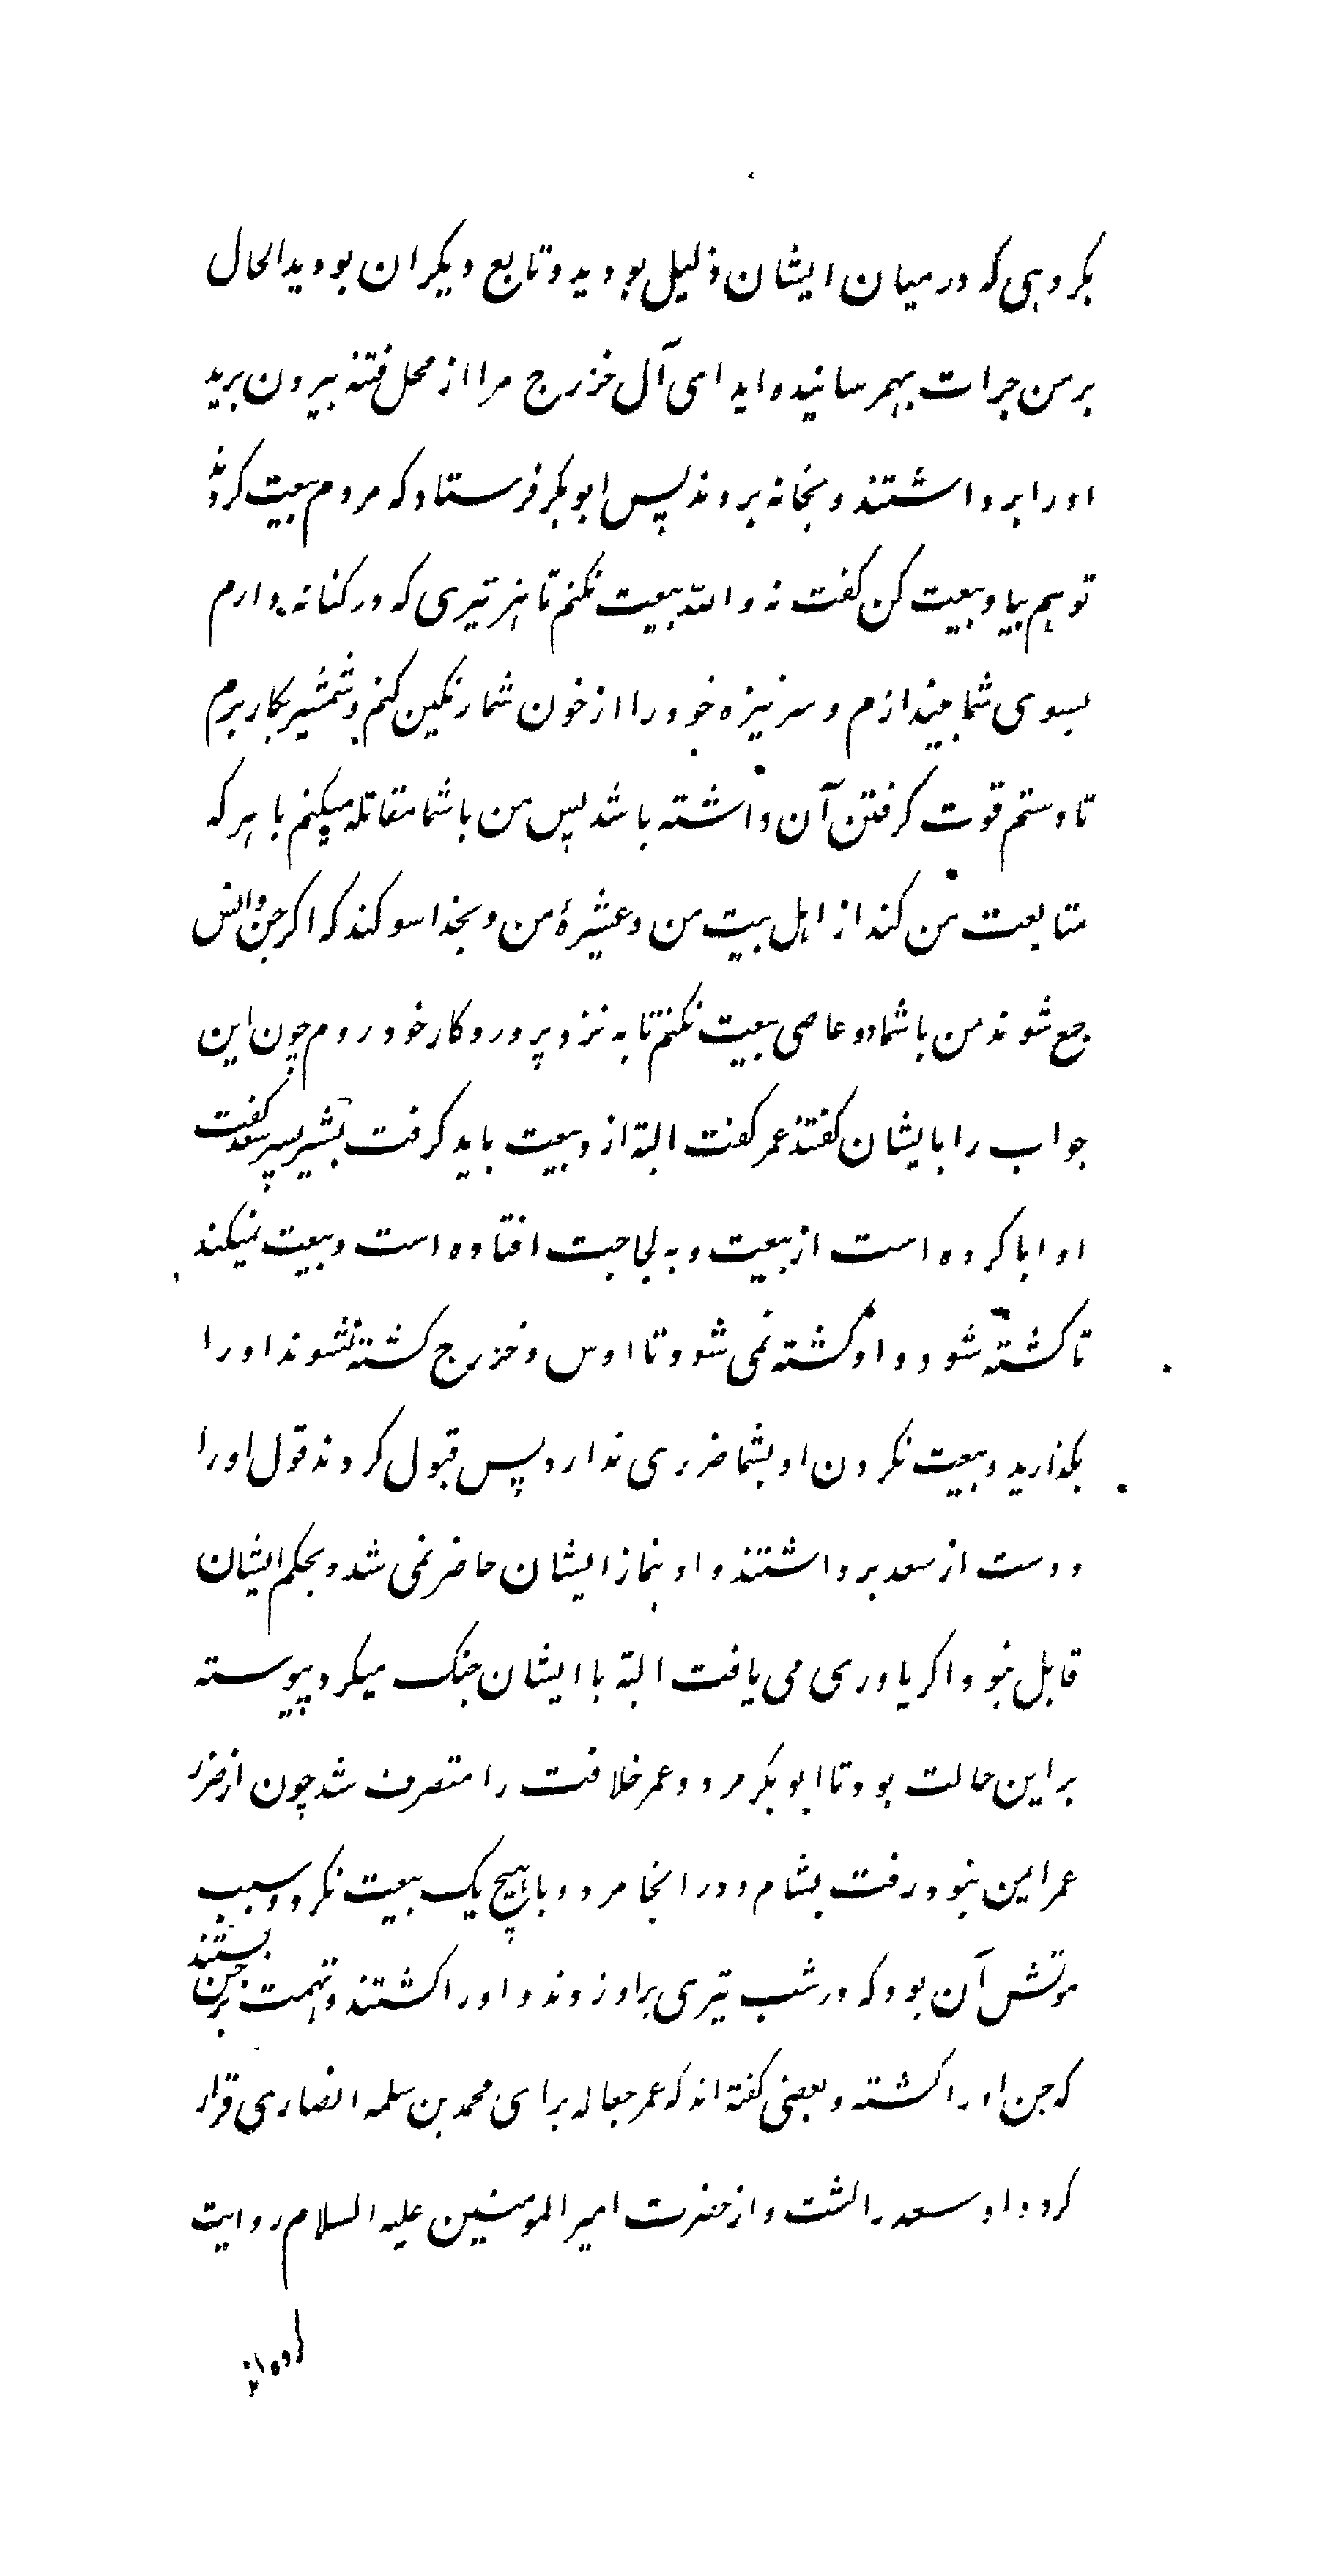 بکروهی که در میان ایشان ذلیل بودید و تابع دیکران بودید الحال
بر من جرات بهمرسانیده اید ای آل خزرج مرا از محل فتنه بیرون برید
او را برداشتند و بخانه بردند پس ابو بکر فرستاد که مردم بیعت کردند
تو هم بیا و بیعت کن کفت نه والله بیعت نکنم تا هر تیری که در کنانه دارم
بسوی شما بیندازم و سر نیزه خود را از خون شما رنکین کنم و شمشیر بکار برم
تا دستم قوت کرفتن آن داشته باشد پس من با شما مقاتله میکنم با هر که
متابعت من کند از اهل بیت من و عشیرهٔ من و بخدا سوکند که اکر جن و انس
جمع شوند من با شما دو عاصی بیعت نکنم تا به نزد پروردکار خود روم چون این
جواب را بایشان کفتند عمر کفت البته از و بیعت باید کرفت بشیر پسر سعد کفت
او ابا کرده است از بیعت و به لجاجت افتاده است و بیعت نمیکند
تا کشته شود و او کشته نمی شود تا اوس و خزرج کشته نشوند او را
بکذارید و بیعت نکردن او بشما ضرری ندارد پس قبول کردند قول او را
و دست از سعد برداشتند و او بنماز ایشان حاضر نمی شد و بحکم ایشان
قابل نبود و اکر یاوری می یافت البته با ایشان جنک میکرد پیوسته
براین حالت بود تا ابو بکر مرد و عمر خلافت را متصرف شد چون از ضرر
عمر ایمن نبود رفت بشام و در انجا مرد و با هیچ یک بیعت نکرد و سبب
موتش آن بود که در شب تیری بر او زدند و او را کشتند و تهمت بر جن بستند
که جن او را کشته و بعضی کفته اند که عمر جعاله برای محمد بن سلمه انصاری قرار
کرد و او سعد را کشت و از حضرت امیر المومنین علیه السلام روایت